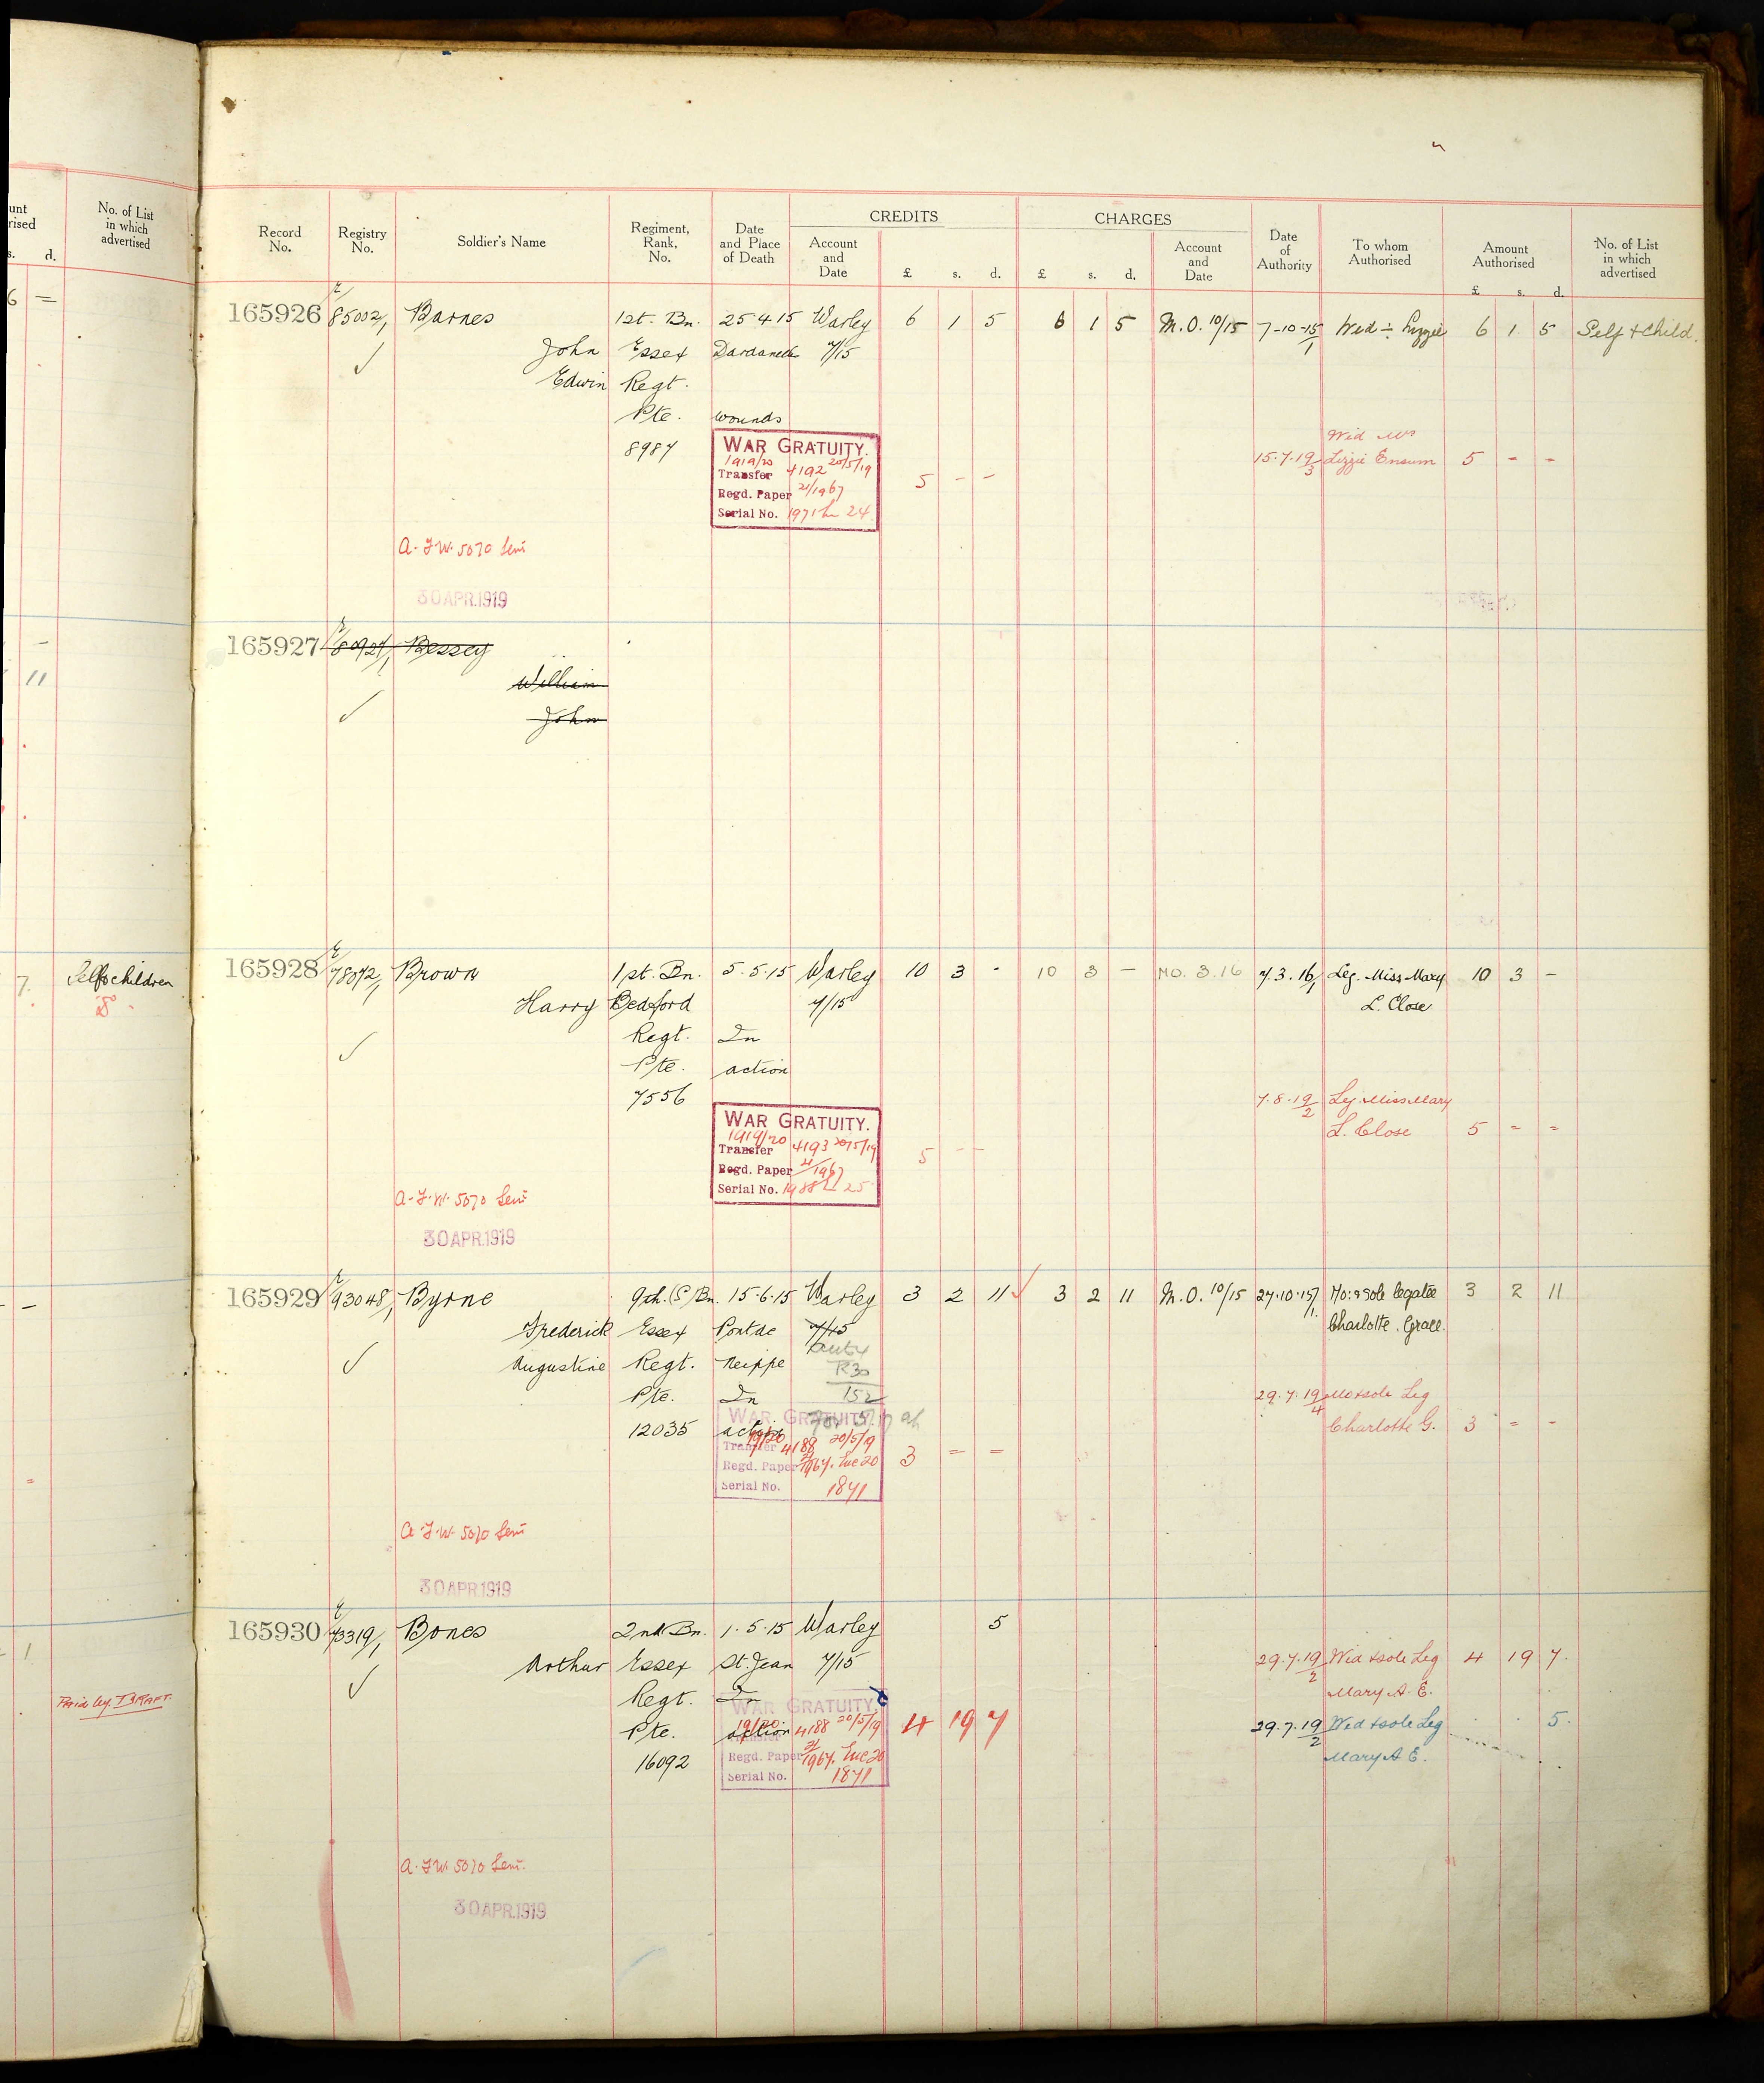 unt
rised
s. d.
No. of List
in which
advertised
6 =
-
11
7. Self & children
- -
=
1
Paid by DRAFT.
Record
No.
Registry
No.
Soldier's Name
Regiment,
Rank,
No.
Date
and Place
of Death
CREDITS
Account
and
Date
£ s. d.
CHARGES
£ s. d.
Account
and
Date
Date
of
Authority
To whom
Authorised
Amount
Authorised
£ s. d.
No. of List
in which
advertised
165926 E/85002/1 Barnes 1st. Bn. 25 4 15 Warley 6 1 5 6 1 5 M.O. 10/15 7-10-15/1 Wid:- Lizzie 6 1 5 Self + Child.
John Essex Dardanelles 7/15
Edwin Regt.
Pte. wounds
8987 WAR GRATUITY. Wid Mrs
1919/20
Transfer 4192 20/5/19 5 - - 15.7.19/3 Lizzie Ensum 5 - -
Regd. Paper 21/1967
Serial No. 1971 24
A.F.W. 5070 Sent
30 APR.1919
165927 E/80921/1 Bessey
William
John
165928 E/78072/1 Brown 1st. Bn. 5.5.15 Warley 10 3 - 10 3 - MO. 3.16 7.3.16/1 Leg. Miss Mary 10 3 -
Harry Bedford 7/15 L. Close
Regt. In
Pte. action
7556 7.8.19/2 Leg. Miss Mary
WAR GRATUITY. L. Close 5 = =
1919/20
Transfer 4193 20/5/19 5 - -
Regd. Paper 21/1967
Serial No. 1988 25
A.F.W. 5070 Sent
30 APR.1919
165929 E/93048/1 Byrne 9th.(S)Bn. 15.6.15 Warley 3 2 11 3 2 11 M.O. 10/15 27.10.15/1 Mo: & Sole legatee 3 2 11
Frederick Essex Pont de 7/15 Charlotte. Grace.
Augustine Regt. Neippe
R30
Pte. In 152 29.7.19/4 Mo & sole Leg
12035 action Charlotte G. 3 = -
WAR GRATUITY.
19/20
Transfer 4188 20/5/19 3 = =
Regd. Paper 21/1967. Sue 20
Serial No. 1871
A.F.W. 5070 Sent
30 APR 1919
165930 E/73319/1 Bones 2nd Bn. 1.5.15 Warley 5
Arthur Essex St. Jean 7/15 29.7.19/2 Wid & sole Leg 4 19 7.
Regt. In Mary A. E.
WAR GRATUITY.
Pte. action 19/20 4188 20/5/19 4 19 7 29.7.19/2 Wid & sole Leg 5.
Transfer
16092 Regd. Paper 21/1967. Sue 20 Mary A E.
Serial No. 1871
A.F.W. 5070 Sent.
30 APR.1919